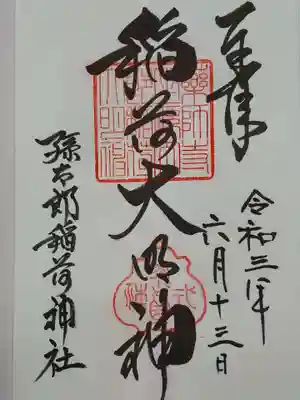 奉拝
令和三年
六月十三日
稲荷大明神
孫太郎稲荷神社